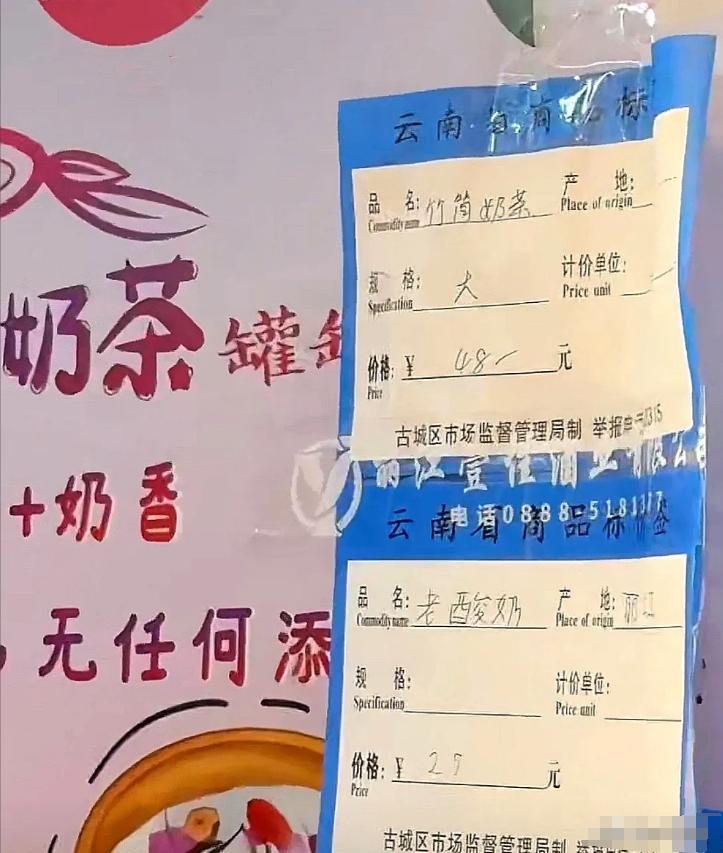 云南省商品标
品 名: 竹筒奶茶 产 地: 一
Commodity name Place of origin
规 格: 大 计价单位: 一
Specification Price unit
价格: ¥ 48一 元
Price
古城区市场监督管理局制 举报
电话0888-518
云南省商品标签
品 名: 老酸奶 产 地: 丽江
Commodity name Place of origin
规 格: 计价单位:
Specification Price unit
价格: ¥ 25 元
Price
古城区市场监督管理局制
奶茶 罐
+奶香
无任何添